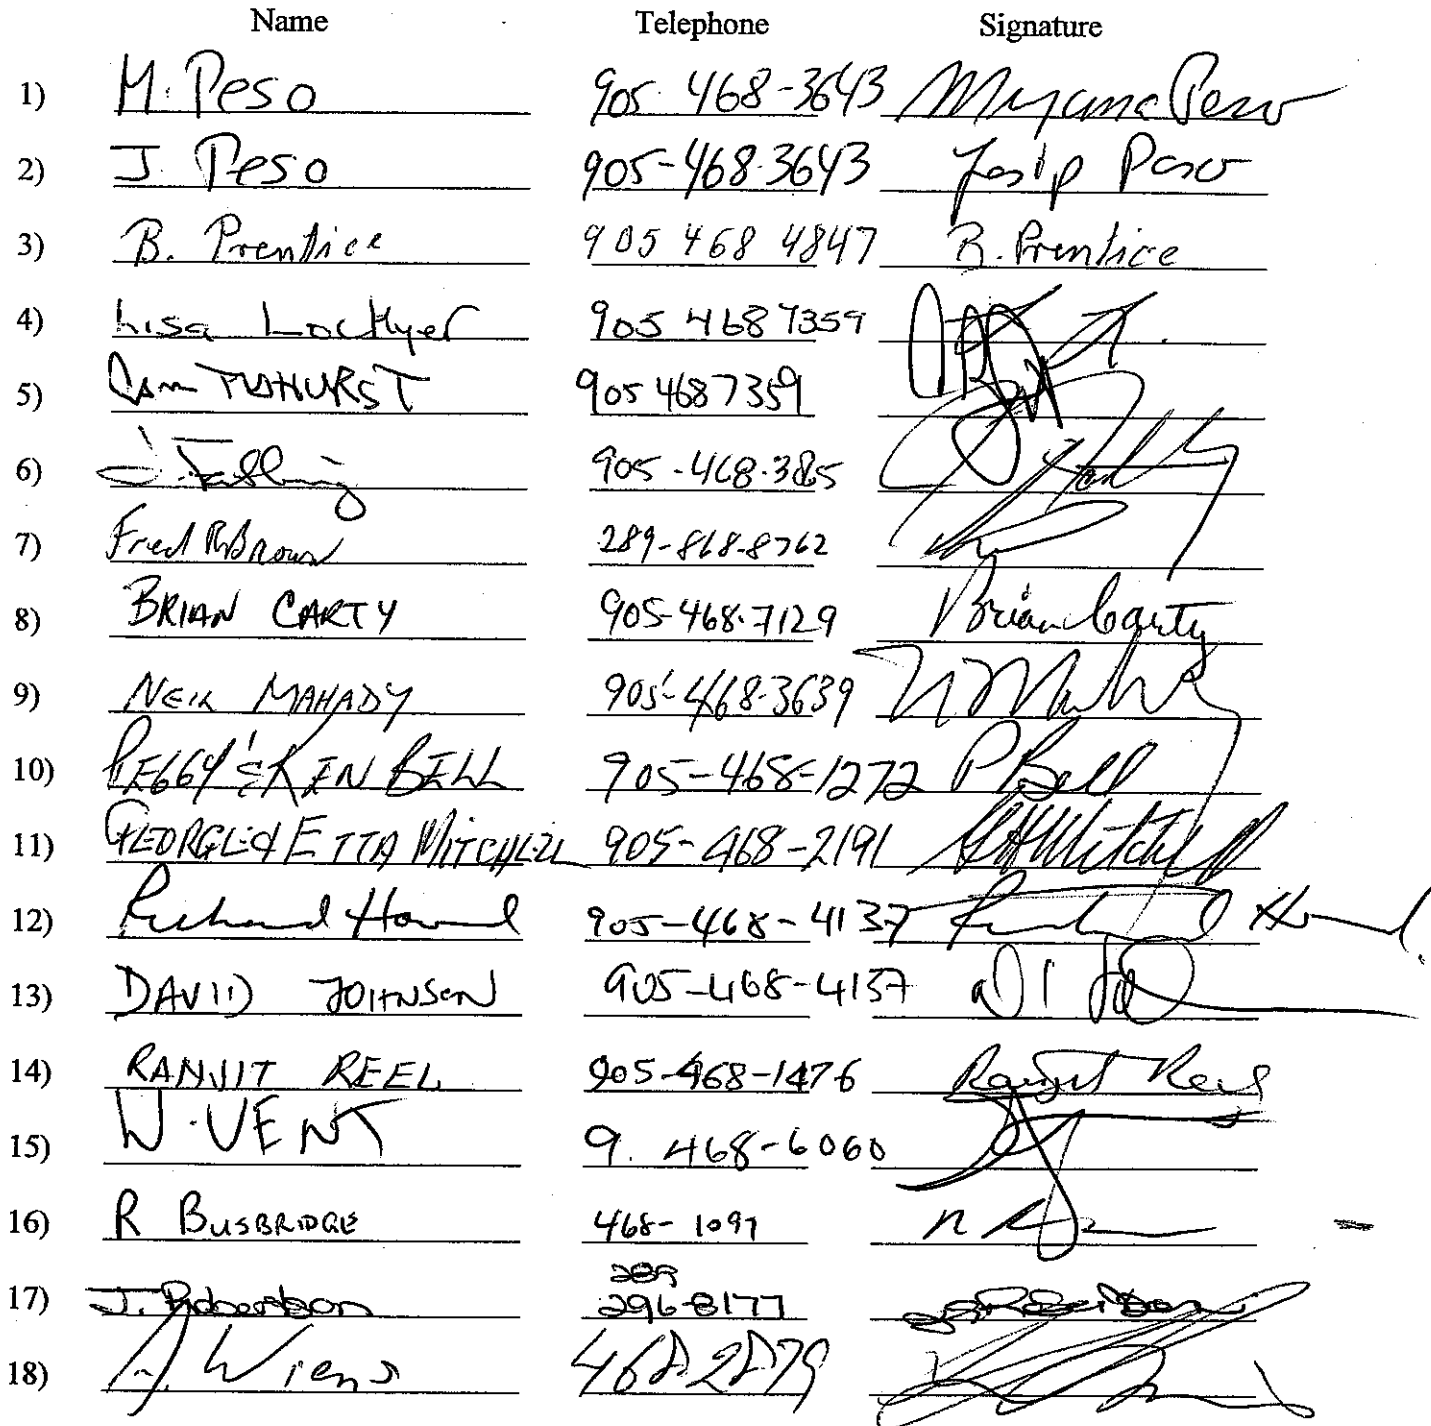 Name Telephone Signature
1) M. Peso 905 468-3643 Peso
2) J. Peso 905-468-3643 Josip Peso
3) B. Prentice 905 468 4847 B. Prentice
4) Lisa Lockyer 905 468 7359
5) 905 468 7359
6) 905-468-3865
7) Fred Brown 289-868-8762
8) BRIAN CARTY 905-468-7129 Brian Carty
9) NEIL MAHADY 905-468-3639
10) PEGGY & KEN BELL 905-468-1272 P Bell
11) GEORGE & ETTA MITCHELL 905-468-2191 Mitchell
12) Richard Howard 905-468-4137 Richard Howard
13) DAVID JOHNSON 905-468-4137
14) RANJIT REEL 905-468-1476 Ranjit Reel
15) W. VENT 9. 468-6060
16) R BUSBRIDGE 468-1097
289
17) J. Robertson 296-8177 Robertson
18) A. Wiens 468-2879